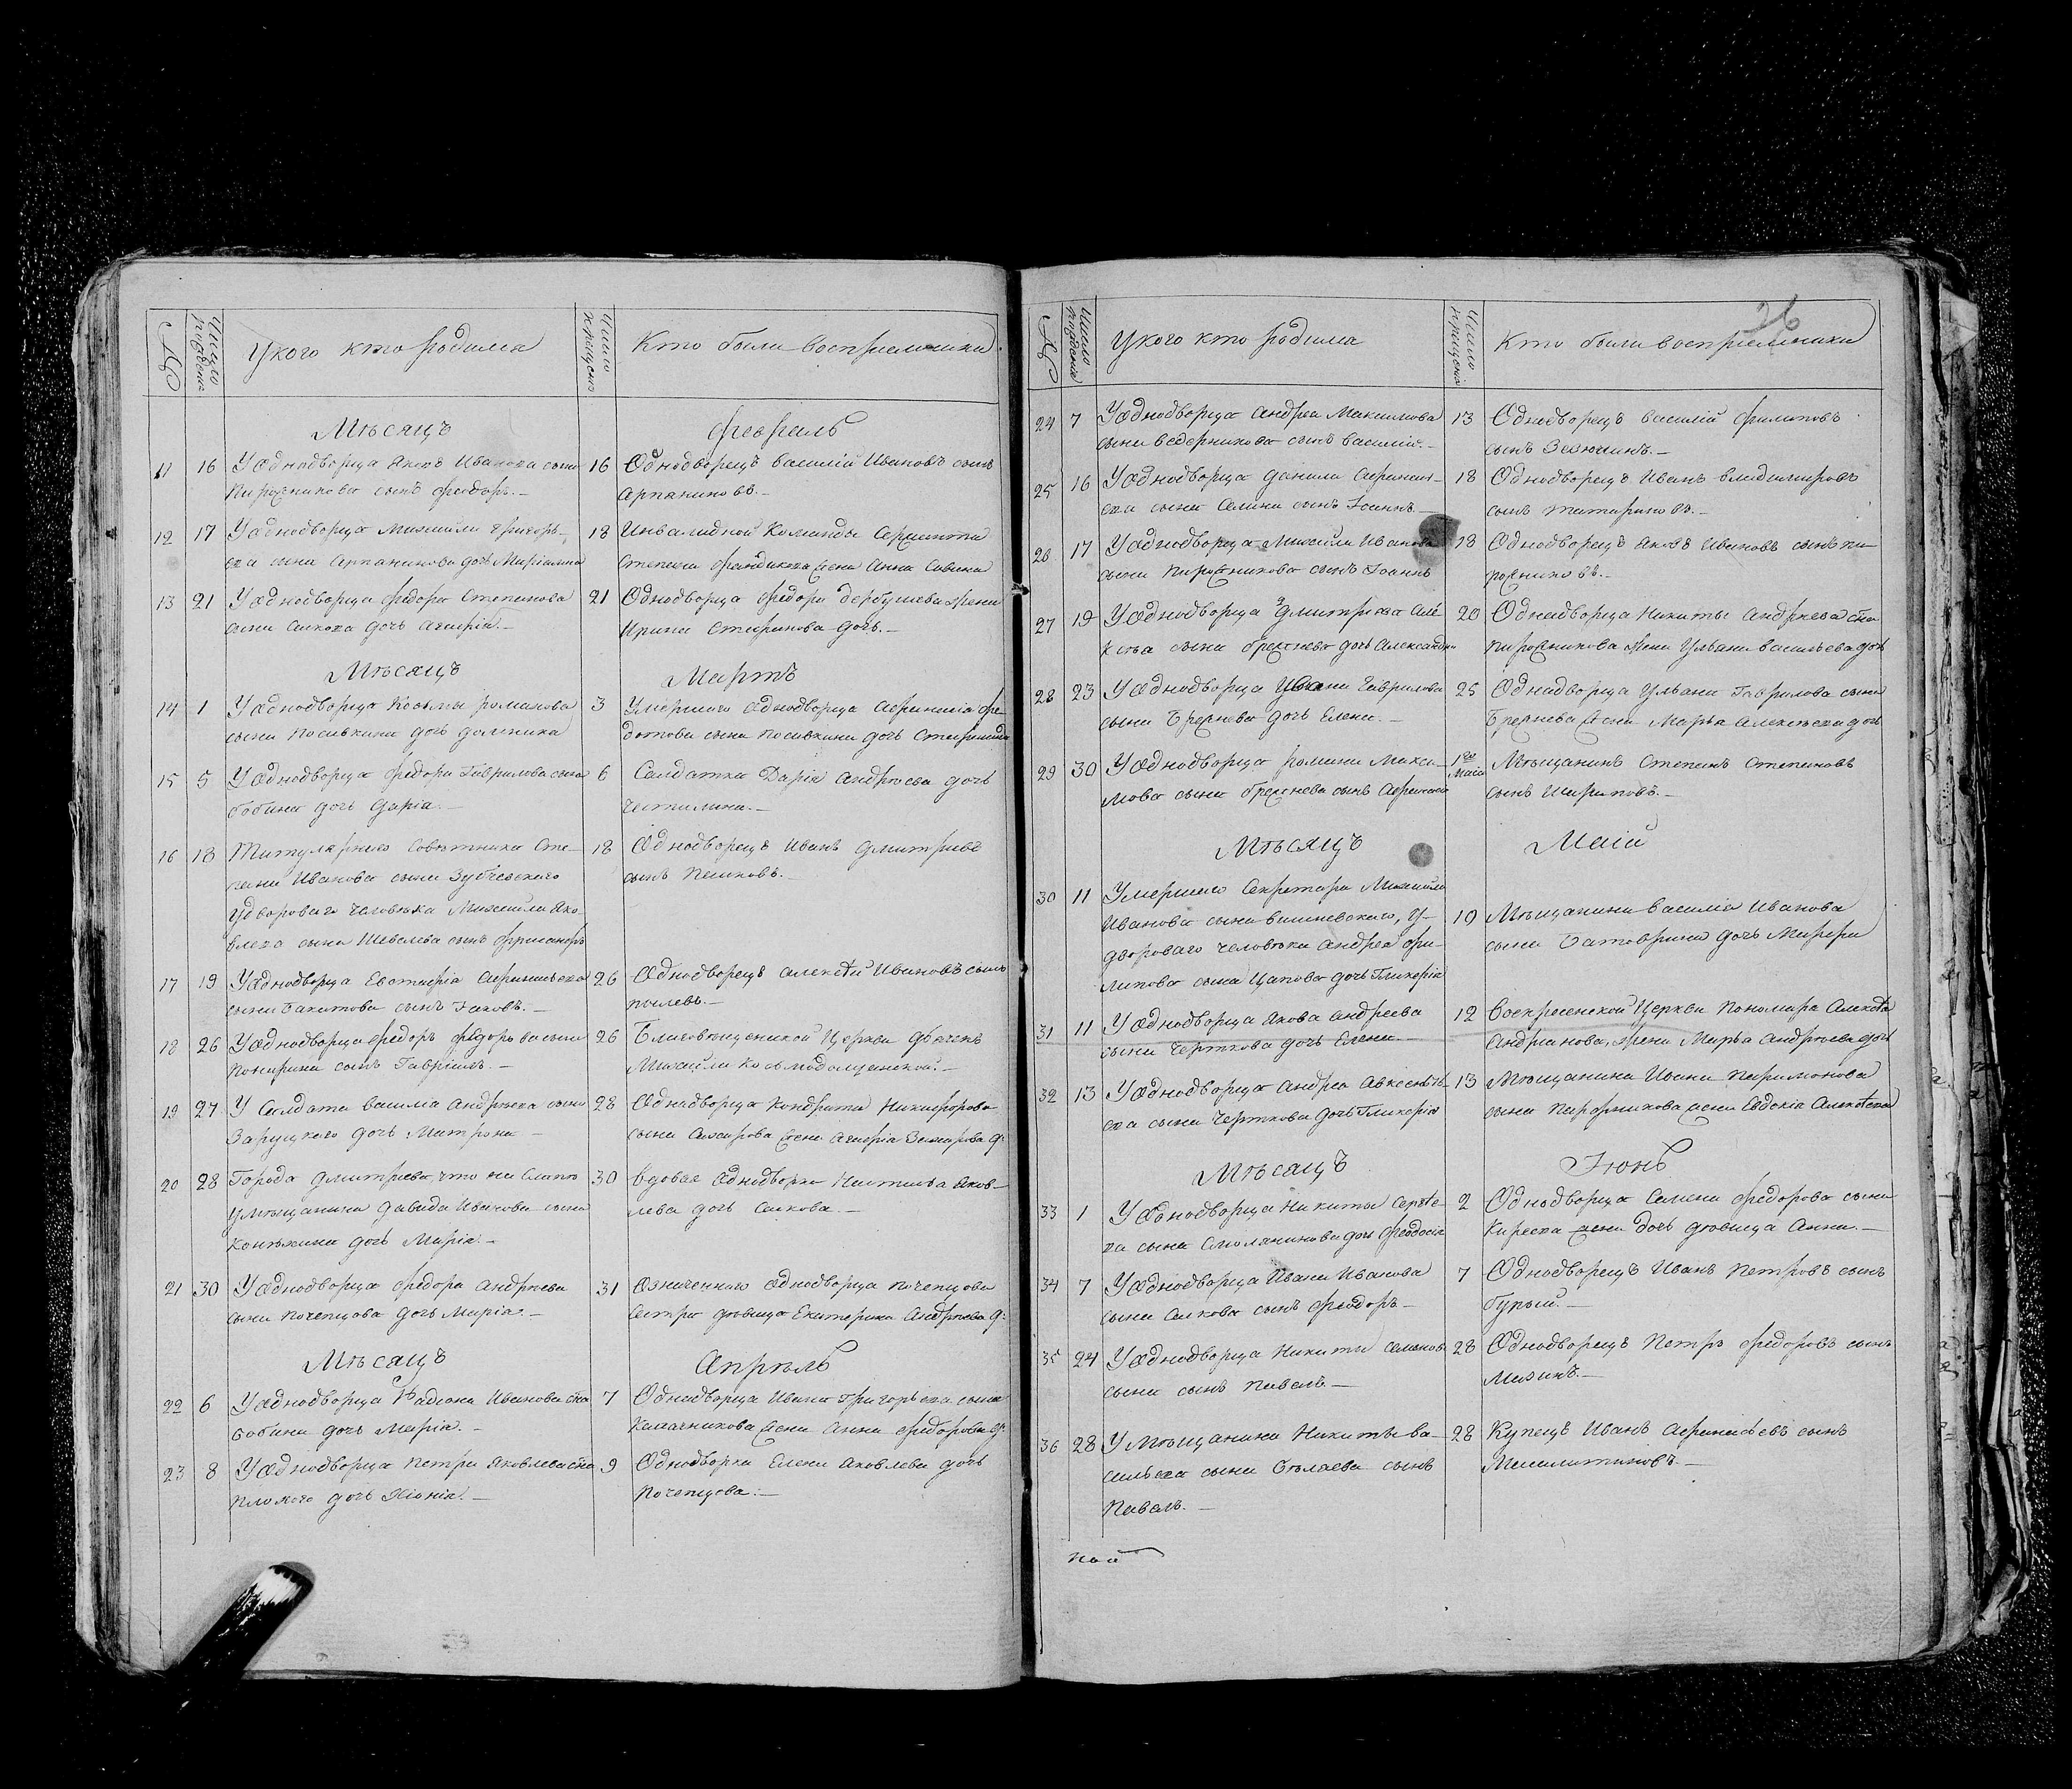 №
Число рождения
У кого кто родился
Число крещения
Кто были восприемники.
Мѣсяцъ
Февраль
11 16 У однодворца Якова Иванова сына
Пирожникова сынъ Феодоръ.—
16 Однодворецъ Василій Ивановъ сынъ
Арпаниновъ.—
12 17 У однодворца Михаила Григорь-
ева сына Арпанинова дочь Маріамна
18 Инвалидной Команды Сержанта
Степана жена Анна Савина
13 21 У однодворца Федора Степанова
сына Салкова дочь Агафіа.—
21 Однодворца Федора Дербушева жена
Ирина Стефанова дочь.—
Мѣсяцъ
Мартъ
14 1 У однодворца Косьмы Романова
сына Посивкина дочь Домника
3 Умершаго однодворца Афанасіа Фе-
дотова сына Посивкина дочь Стефанида
15 5 У однодворца Федора Гаврилова сына
Бобина дочь Даріа.—
6 Салдатка Даріа Андрѣева дочь
16 18 Титулярнаго Совѣтника Сте-
пана Иванова сына Зубчевского
у двороваго человѣка Михаила Яко-
влева сына Шевелева сынъ
18 Однодворецъ Иванъ Дмитріевъ
сынъ Пешковъ.—
17 19 У однодворца Евстафіа Афанасьева
сына Бахтова сынъ Іаковъ.—
26 Однодворецъ Алексѣй Ивановъ сынъ
Пылевъ.—
18 26 У однодворца Федоръ Федорова сына
Понарина сынъ Гавріилъ.—
26 Благовѣщенской Церкви дьячекъ
Михаила Косьмодомианской.—
19 27 У Салдата Василіа Андрѣева сына
Заруцкаго дочь Матрона—
28 Однодворца Кондрата Никифорова
сына жена Агафіа д:
20 28 Города Дмитріева, что на Свапѣ
у мѣщанина Давида Иванова сына
Конѣхина дочь Маріа.—
30 Вдовая однодворка Наталья Яков-
лева дочь Салкова.—
21 30 У однодворца Федора Андрѣева
сына Почепцова дочь Маріа.—
31 Означеннаго однодворца Почепцова
сестра дѣвица Екатерина Андрѣева д:
Мѣсяцъ
Апрѣль
22 6 У однодворца Радіона Иванова сна
Бобина дочь Маріа.—
7 Однодворца Ивана Григорьева сына
Калачникова жена Анна Федорова д:
23 8 У однодворца Петра Яковлева сна
Плохого дочь Хіоніа.—
9 Однодворка Елена Яковлева дочь
Почепцова.—
26
№
Число рожденія
У кого кто родился
Число крещения
Кто были восприемники
24 7 У однодворца Андреа Максимова
сына Ведерникова сынъ Василій.—
13 Однодворецъ Василій Филиповъ
сынъ Зезюлинъ.—
25 16 У однодворца Данила Афанась-
ева сына Селина сынъ Іоаннъ—
18 Однодворецъ Иванъ Владимировъ
сынъ Татариновъ.—
26 17 У однодворца Михаила Иванова
сына Пирожникова сынъ Іоаннъ
18 Однодворецъ Яковъ Ивановъ сынъ Пи-
рожниковъ.—
27 19 У однодворца Дмитріева Але-
ксѣа сына Брежнева дочь Александра
20 Однодворца Никиты Андрѣева сна
Пирожникова жена Ульана Васильева дочь
28 23 У однодворца Ульана Гаврилова
сына Брежнева дочь Елена.—
25 Однодворца Ульана Гаврилова сына
Брежнева жена Марѳа Алексѣева дочь
29 30 У однодворца Романа Макси-
мова сына Брежнева сынъ Афанасій
1го Маіа Мѣщанинъ Степанъ Степановъ
сынъ Шараповъ.—
Мѣсяцъ
Маій
30 11 Умершаго Секретаря Михаила
Иванова сына Вишневскаго, у
двороваго человѣка Андреа Фи-
липова сына Цапова дочь Гликеріа
19 Мѣщанина Василіа Иванова
сына Батоврина дочь Марѳа
31 11 У однодворца Якова Андреева
сына Черткова дочь Елена.—
12 Воскресенской Церкви Пономаря Алексѣа
Андріанова, жена Марѳа Андрѣева дочь
32 13 У однодворца Андреа Авксентье-
ева сына Черткова дочь Гликеріа
13 Мѣщанина Ивана Парамонова
сына Парфенкова жена Евдокіа Алексѣева
Мѣсяцъ
Іюнь
33 1 У однодворца Никиты Сергѣе-
ва сына Смолянинова дочь Феодосіа
2 Однодворца Семена Федорова сына
Киреева жена дочь дѣвица Анна.—
34 7 У однодворца Ивана Иванова
сына Салкова сынъ Феодоръ—
7 Однодворецъ Иванъ Петровъ сынъ
Бурый.—
35 24 У однодворца Никиты Семенова
сына сынъ Павелъ.—
28 Однодворецъ Петръ Федоровъ сынъ
Мазинъ.—
36 28 У Мѣщанина Никиты Ва-
сильева сына Бѣляева сынъ
Павелъ.—
28 Купецъ Иванъ Афанасьевъ сынъ